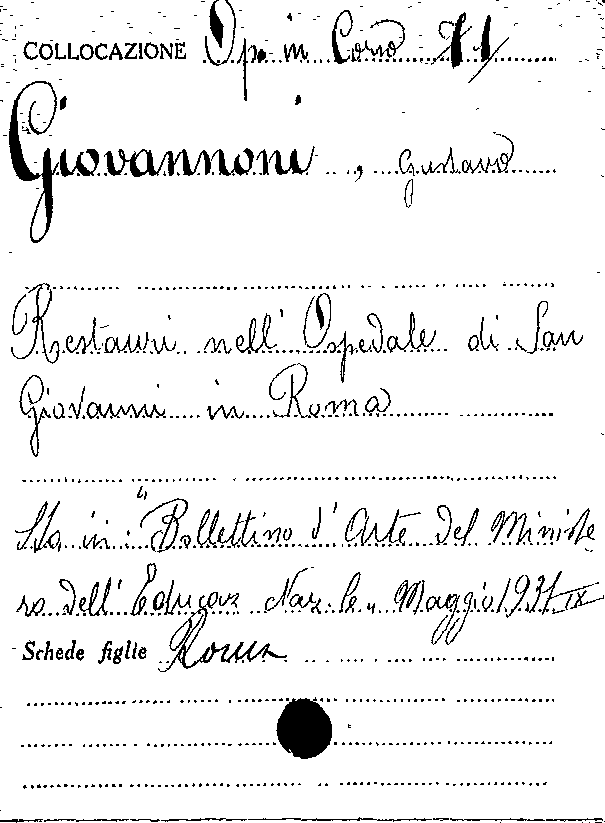 COLLOCAZIONE Op. in Corso 71
Giovannoni, Gustavo
Restauri nell' Ospedale di San
Giovanni in Roma
Sta in: "Bollettino d'Arte del Ministe
ro dell' Educaz Naz.le" Maggio 1931 IX
Schede figlie Roma